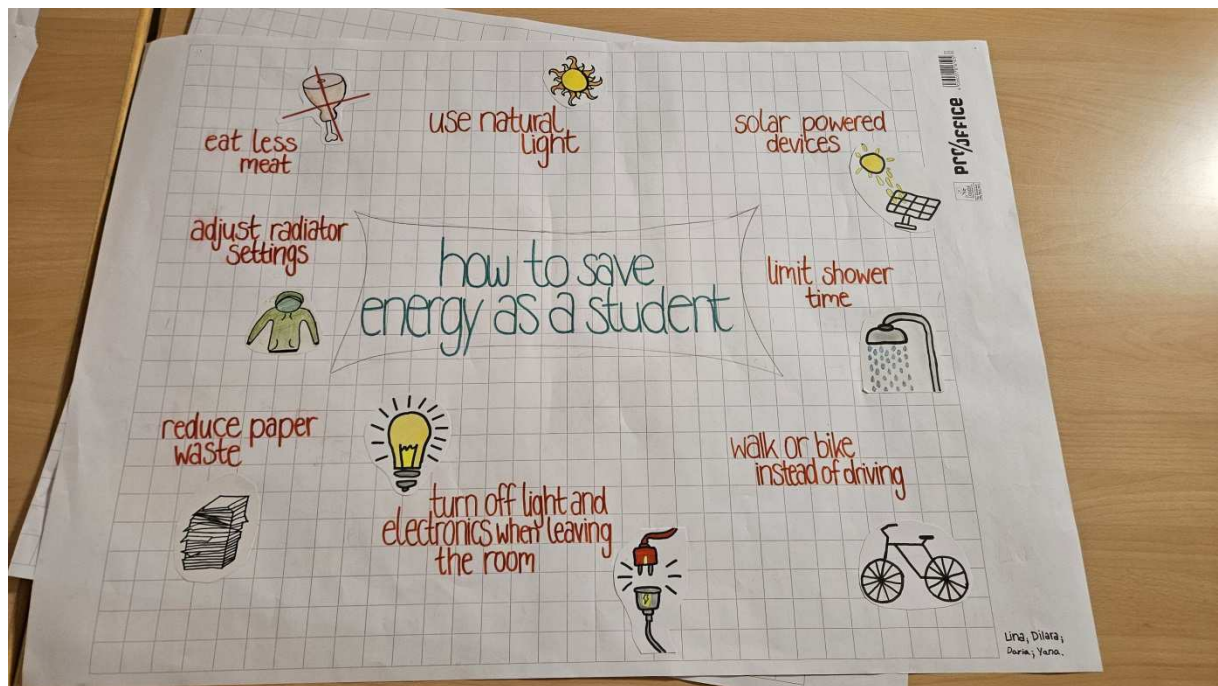 eat less
meat
use natural
light
solar powered
devices
adjust radiator
settings
how to save
energy as a student
limit shower
time
reduce paper
waste
turn off light and
electronics when leaving
the room
walk or bike
instead of driving
Lina, Dilara,
Daria, Yana.
PRO/OFFICE